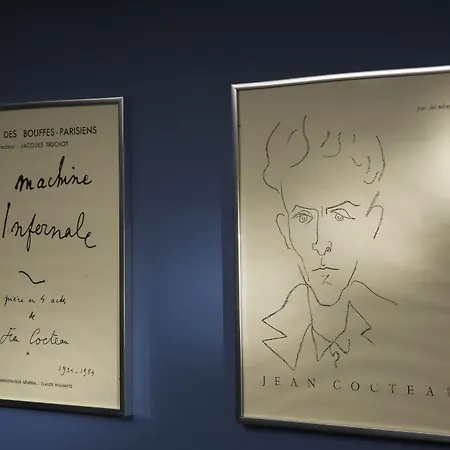 DES BOUFFES-PARISIENS
JACQUES TRUCHOT
machine
Infernale
pièce en 4 actes
de
Jean Cocteau
1934-1954
ADMINISTRATEUR GÉNÉRAL : CLAUDE WILLIMETZ
par lui-même
JEAN COCTEAU